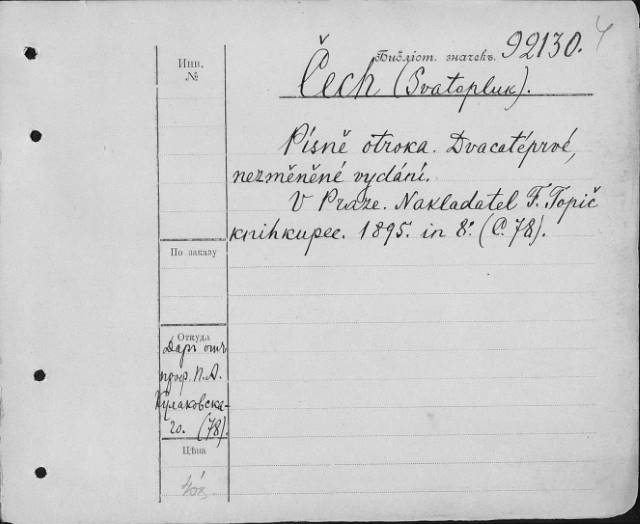 Библіот. значекъ. 92130. 4
Инв.
№
Čech (Svatopluk).
Písně otroka. Dvacatéprvé,
nezměněné vydání.
V Praze. Nakladatel F. Topič
knihkupec. 1895. in 8º. (C. 78).
По заказу
Откуда
Даръ отъ
проф. П. А.
Кулаковска-
го. (78).
Цѣна